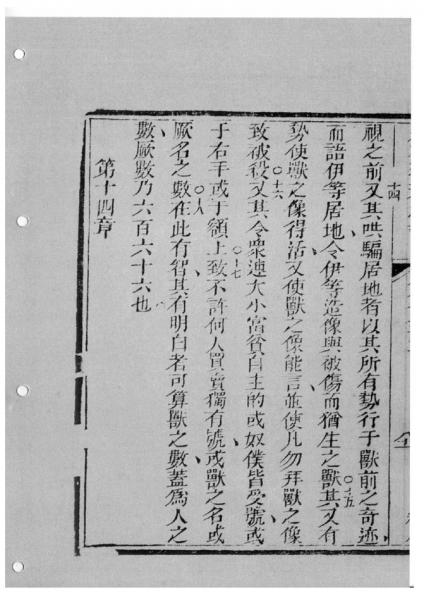 視之前又其哄騙居地者以其所有勢行于獸前之奇迹
十四
而語伊等居地令伊等造像與被傷而猶生之獸其又有
〇十五
勢使獸之像得活又使獸之像能言並使凡勿拜獸之像
〇十六
致被殺又其令衆連大小富貧自主的或奴僕皆受號或
〇十七
于右手或于額上致不許何人買賣獨有號或獸之名或
〇十八
厥名之數在此有智其有明白者可算獸之數蓋為人之
數厥數乃六百六十六也
第十四章